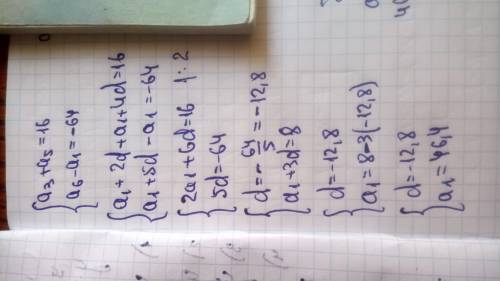 {a3+a5=16
a6-a1=-64
{a1+2d+a1+4d=16
a1+5d-a1=-64
{2a1+6d=16 |:2
5d=-64
{d=-64/5=-12,8
a1+3d=8
{d=-12,8
a1=8-3(-12,8)
{d=-12,8
a1=46,4